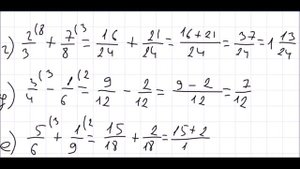 г) 2/3 (8 + 7/8 (3 = 16/24 + 21/24 = 16+21/24 = 37/24 = 1 13/24
3/4 (3 - 1/6 (2 = 9/12 - 2/12 = 9-2/12 = 7/12
е) 5/6 (3 + 1/9 (2 = 15/18 + 2/18 = 15+2/1